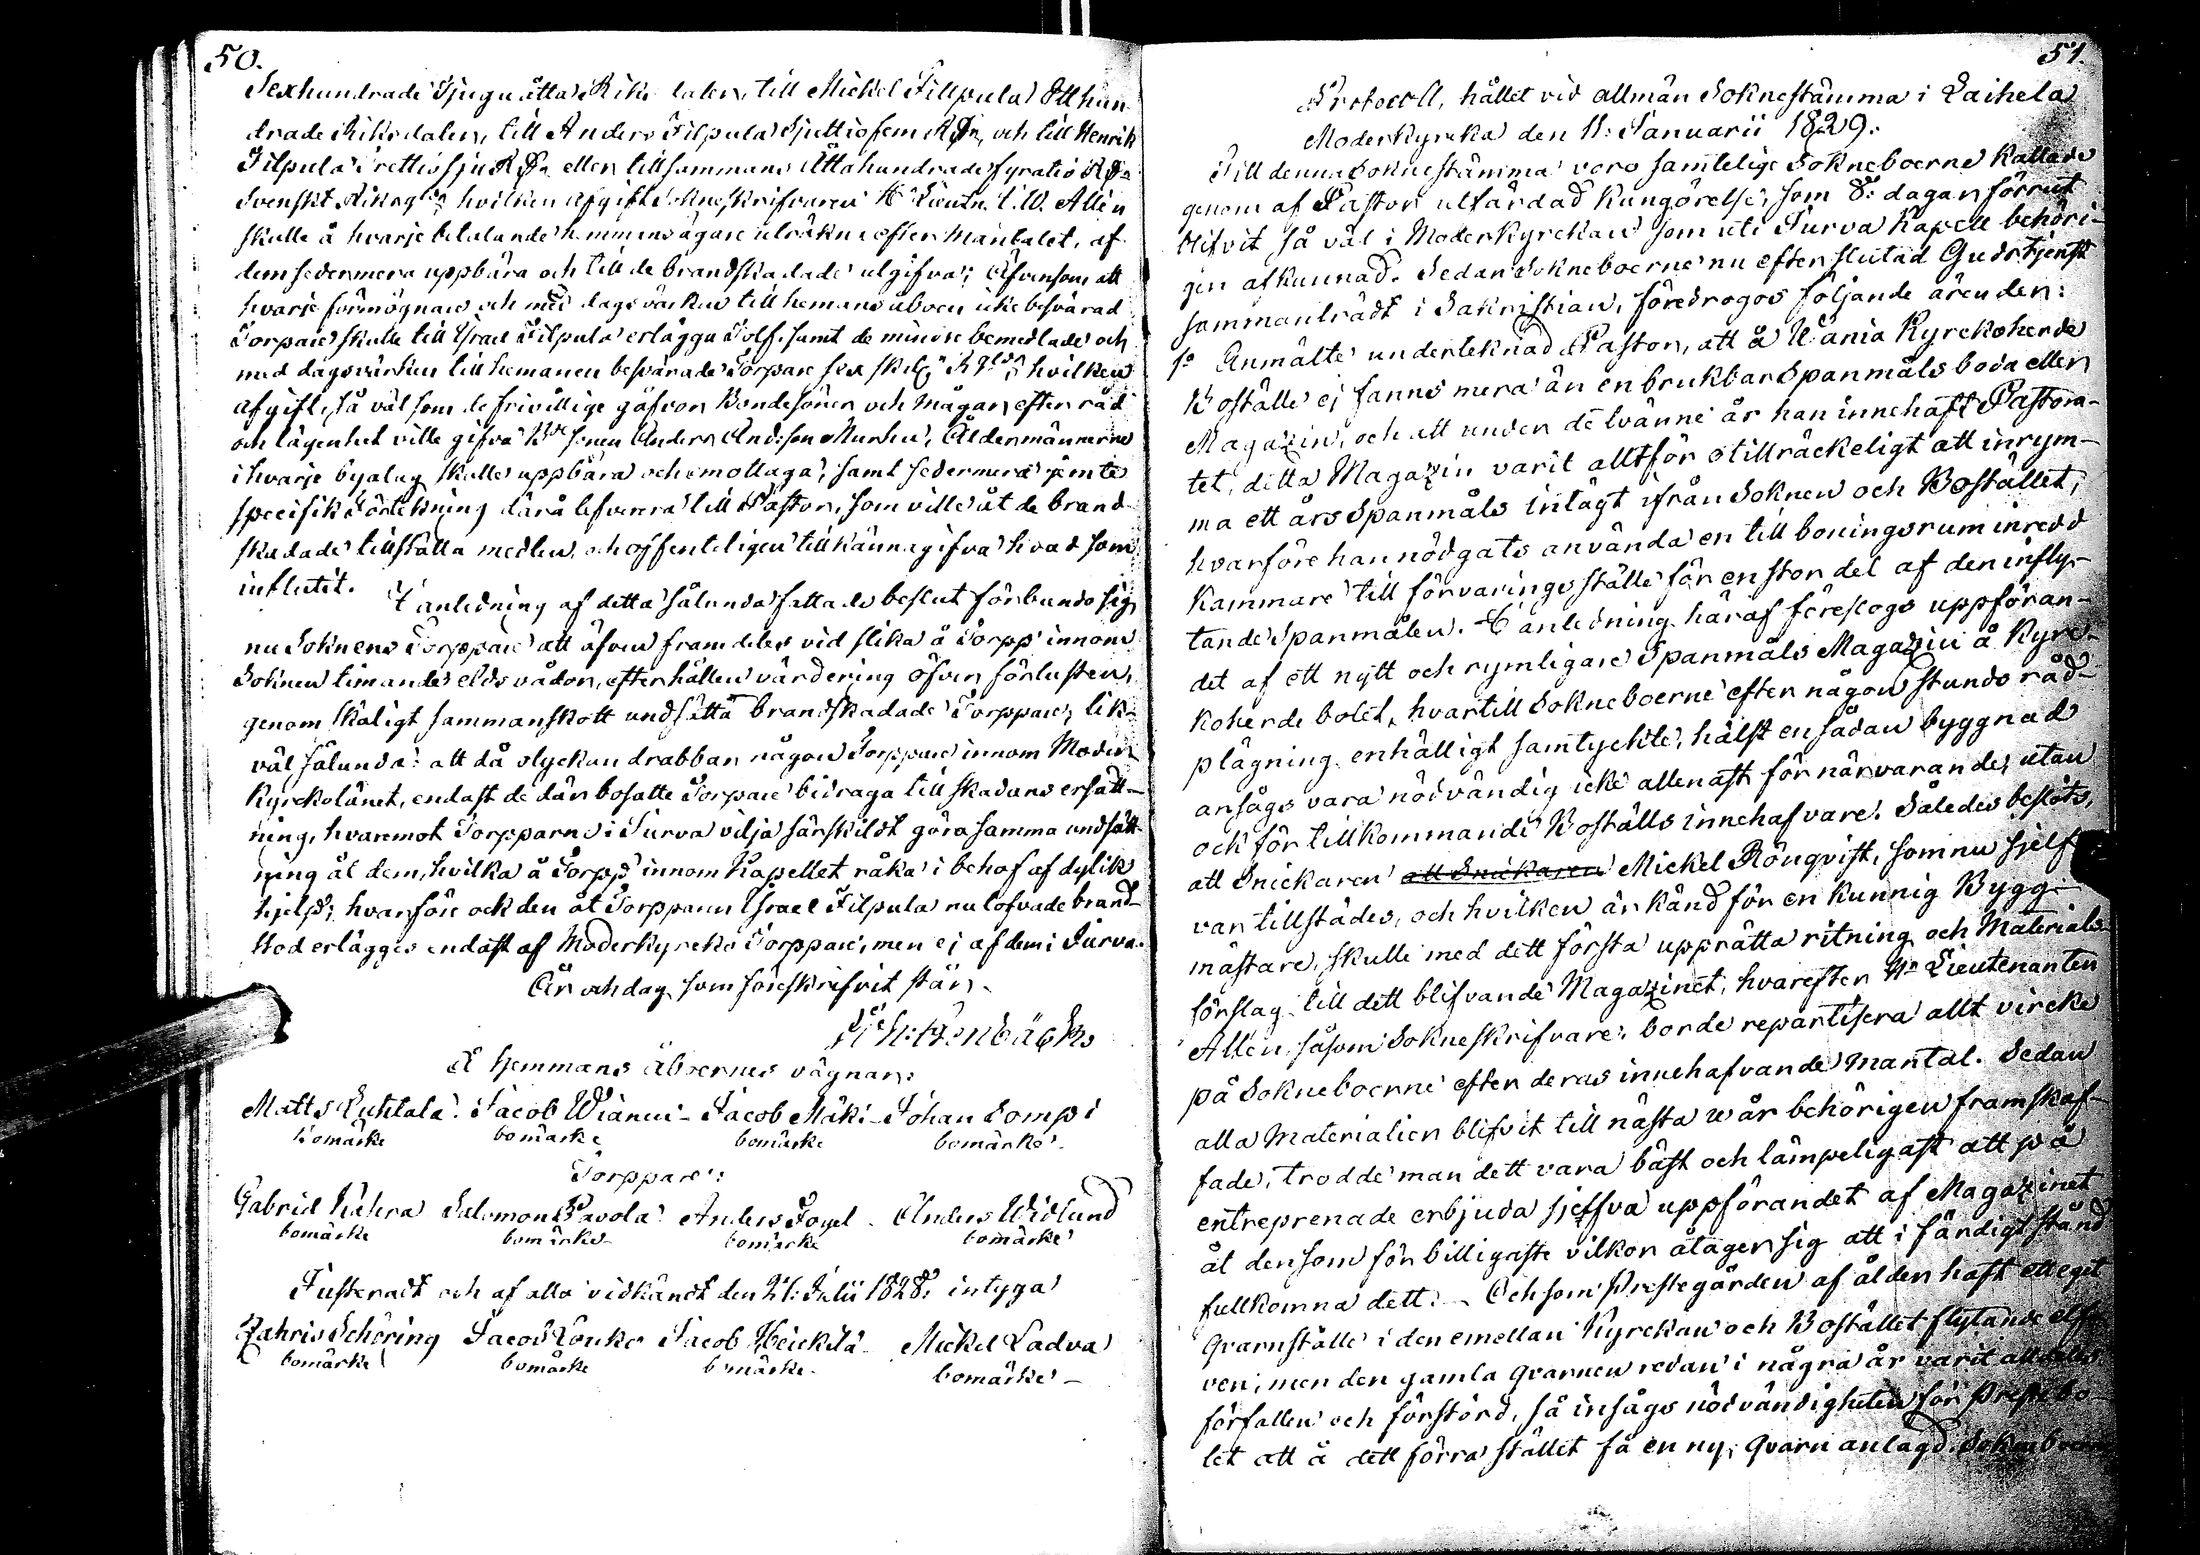 50.
Sexhundrade Tjuguåtta Riksdaler, till Mickel Fillpula Ett hun-
drade Riksdaler, till Anders Filpula Sjuttiofem RD:r, och till Henrik
Filpula Trettiosju RD:r eller tillsammans Åttahundradefyratio RD:r
Svenskt Riksg:ds hvilken afgift Sokneskrifvaren H:r Lieutn. Allén
skulle å hvarje betalande hemmansägare uträkna efter Mantalet, af
dem sedermera uppbära och till de brandskadade utgifva; Äfvensom att
hvarje förmögnare och med dagsvärken till hemans åboen icke besvärad
Torpare skulle till Israel Filpula erlägga Tolf, samt de mindre bemedlade och
med dagsvärken till hemanen besvärade Torpare sex skil: R:gds; hvilken
afgift, så väl som de frivillige gåfvor Bondesöner och Mågar efter råd
och lägenhet ville gifva Anders Andsson Murhu, Åldermännerne
i hvarje byalag skulle uppbära och emottaga, samt sedermera jemte
specifik Förtekning därå lefverera till Pastor, som ville åt de brand-
skadade tillställa medlen och offenteligen tillkännagifva hvad som
influtit.
I anledning af detta sålunda fattade beslut förbundo sig
nu Soknens Torppare att äfven framdeles vid slika å Torpp innom
Soknen timande eldsvådor, efter hållen värdering öfver förlusten,
genom skäligt sammanskott undsätta brandskadade Torppare, lik-
väl sålunda: att då olyckan drabbar någon Torppare innom Moder-
Kyrkolänet, endast de där bosatte Torpare bidraga till skadans ersätt-
ning, hvaremot Torpparne i Jurva vilja särskildt göra samma undsätt-
ning åt dem, hvilka å Torpp innom Kapellet råka i behof af dylik
hjelp; hvarföre ock den åt Torpparen Israel Filpula nu lofvade brand-
stod erlägges endast af Moderkyrko Torppare, men ej af dem i Jurva.
År och dag som föreskrifvit står.
Å Hemmans Åboernes vägnar:
Matts Luhtala. Jacob Wiänni - Jacob Mäki - Johan Sompi
bomärke bomärke bomärke bomärke
Torppare:
Gabriel Kahra Salomon Pavola Anders Fogel - Anders Widlund
bomärke bomärke bomärke bomärke
Justeradt och af alla vidkändt den 27: Julii 1828: intyga
Zahris Schöring Jacob Louko Jacob Heickilä - Mickel Ladva
bomärke bomärke bomärke - bomärke -
51.
Protocoll, hållet vid allmän Soknestämma i Laihela
Moderkyrcka den 11: Januarii 1829.
Till denna Soknestämma voro samtelige Sokneboerne kallade
genom af Pastor utfärdad Kungörelse, som 8: dagar förrut
blifvit så väl i Moderkyrckan som uti Jurva Kapell behöri-
gen afkunnad. Sedan Sokneboerne nu efter slutad Gudstjenst
sammanträdt i Sakristian, föredrogos följande ärenden:
1:o Anmälte underteknad Pastor, att å Wänia Kyrckoherde
Boställe ej fanns mera än en brukbar Spanmåls boda eller
Magazin, och att under de tvänne år han innehaft Pastora-
tet, detta Magazin varit alltför otillräckeligt att inrym-
ma ett års Spanmåls intägt ifrån Soknen och Bostället,
hvarföre han nödgats använda en till boningsrum inredd
Kammare till förvarings ställe för en stor del af den infly-
tande Spanmålen. I anledning häraf föreslogs uppföran-
det af ett nytt och rymligare Spanmåls Magazin å Kyrc-
koherde bolet, hvartill Sokneboerne efter någon stunds råd-
plägning enhälligt samtyckte, hälst en sådan byggnad
ansågs vara nödvändig icke allenast för närvarande, utan
ock för tillkommande Boställs innehafvare. Således beslöts,
att Snickaren att Snickaren Mickel Rönqvist, som nu sjelf
var tillstädes, och hvilken är känd för en kunnig Bygg-
mästare, skulle med dett första upprätta ritning och Materials-
förslag till dett blifvande Magazinet, hvarefter H:r Lieutenanten
Allén, såsom Sokneskrifvare, borde repartisera allt vircke
på Sokneboerne efter deras innehafvande Mantal. Sedan
alla Materialier blifvit till nästa Wår behörigen framskaf-
fade, trodde man dett vara bäst och lämpeligast att på
entreprenade erbjuda sjelfva uppförandet af Magazinet
åt den som för billigaste vilkor åtager sig att i färdigt stånd
fullkomna dett. - Och som Prestegården af ålder haft ett eget
Qvarnställe i den emellan Kyrckan och Bostället flytande elf-
ven, men den gamla Qvarnen redan i några år varit alldeles
förfallen och förstörd, så insågs nödvändigheten för Prestbo-
let att å dett förra stället få en ny Qvarn anlagd. Sokneboerne